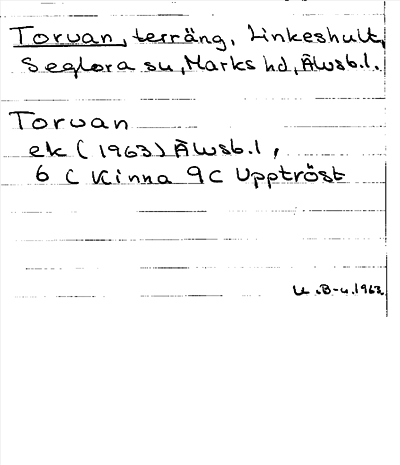 Torvan, terräng, Linkeshult,
Seglora sn, Marks hd, Älvsb.l.
Torvan
ek (1963) Älvsb.l,
6 C Kinna 9c Upptröst
U.B-u.1963.